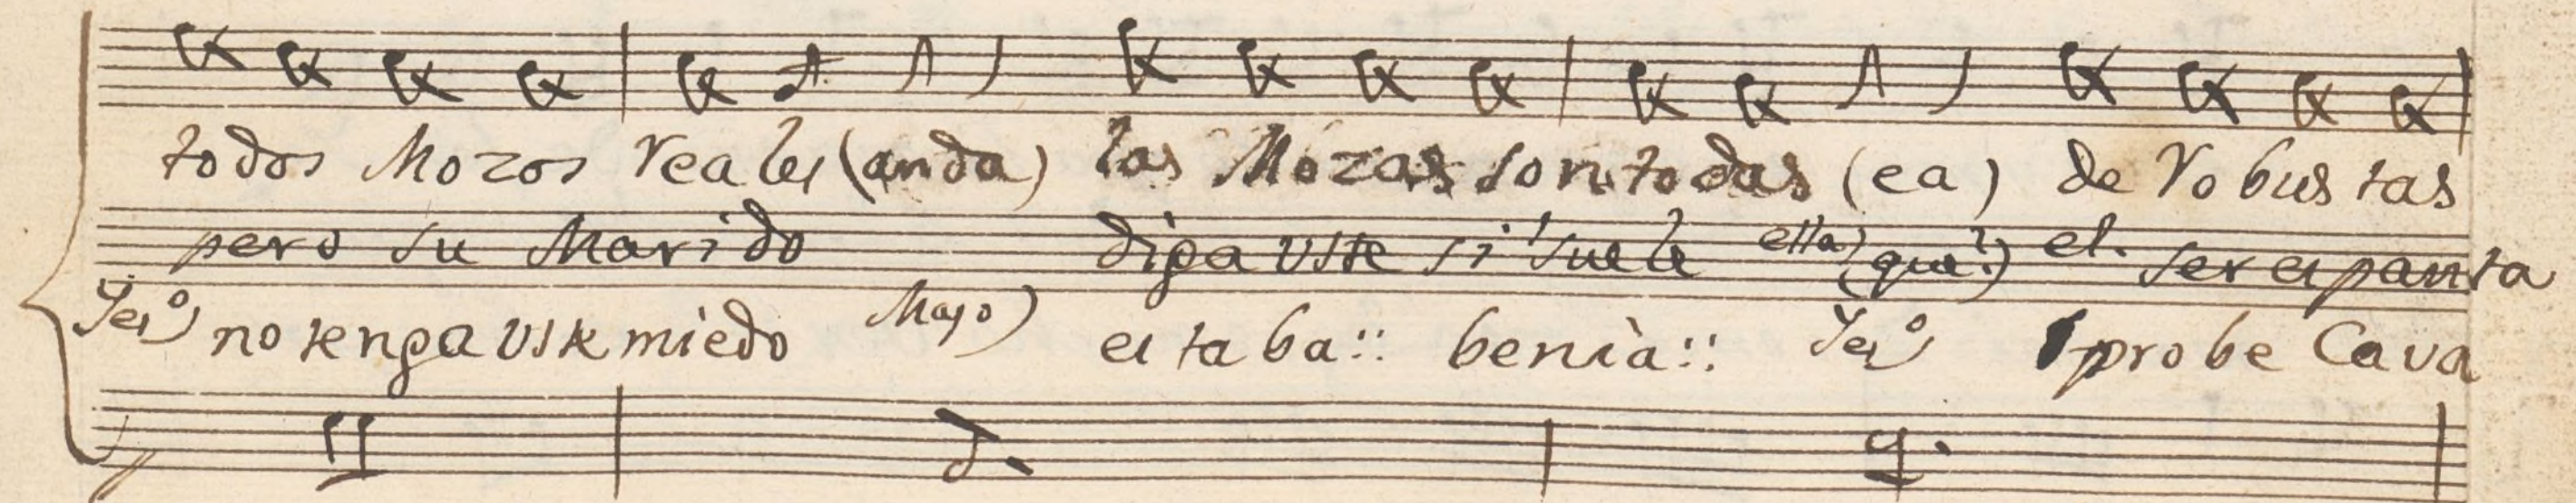 todos Mozos reales (anda) las Mozas son todas (ea) de robustas
pero su Marido diga uste si suele ella) (que?) el. ser espanta
no tenga uste miedo Majo) estaba:: benìa:: probe Cava